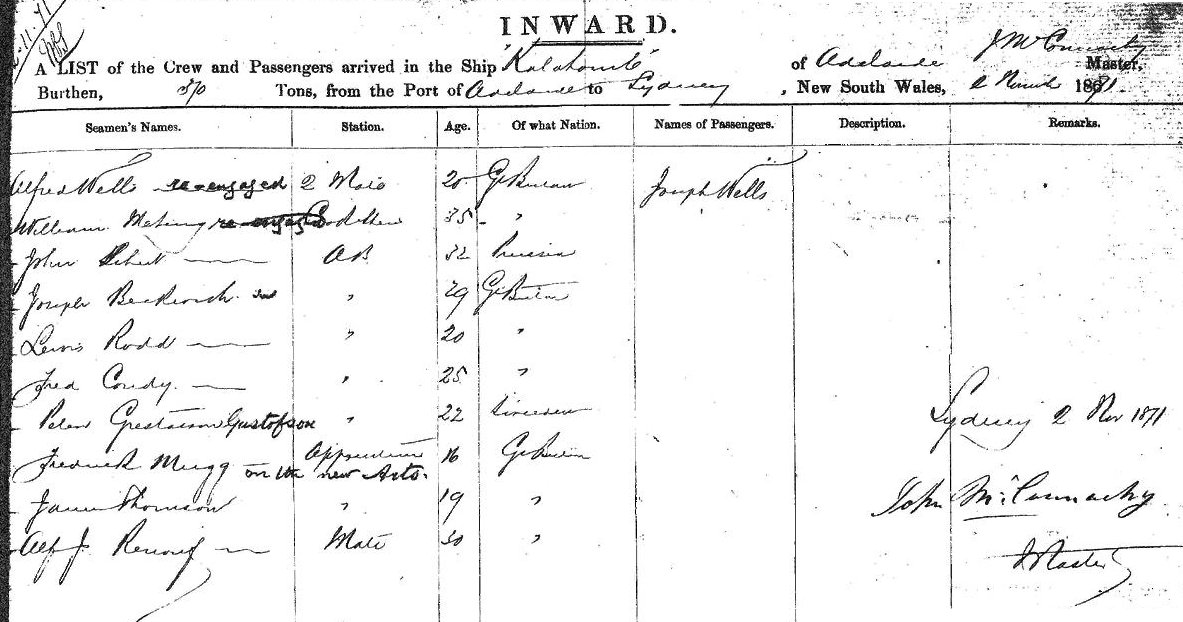 2-11-71
INWARD.
A LIST of the Crew and Passengers arrived in the Ship "Kalahome" of Adelaide J McConnachy Master,
Burthen, Tons, from the Port of Adelaide to Sydney, New South Wales, 2 1871.
Seamen's Names. Station. Age. Of what Nation. Names of Passengers. Description. Remarks.
Alfred Wells re-engaged 2 Mate 20 Gt Britain Joseph Wells
William 35 "
John AB 32 Prussia
Joseph " 29 Gt Britain
Lewis Rodd " 20 "
Fred Condy " 25 "
Peter Gustafson " 22 Sweden
Sydney 2 Nov 1871
Frederick Mugg on the new Arts. Apprentice 16 Gt Britain
James Thomson " 19 "
John McConnachy
Alf J. Renouf Mate 30 "
Master